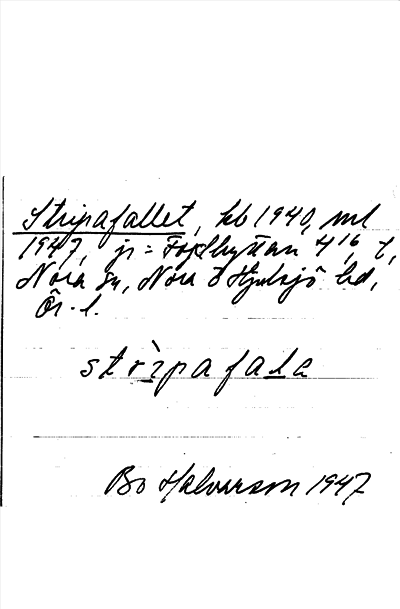 Stripafallet, hb 1940, ml
1947, jr = Fogdhyttan 4¹⁶, t,
Nora sn, Nora o Hjulsjö hd,
Ör. l.
strìpafala
Bo Halvarson 1947